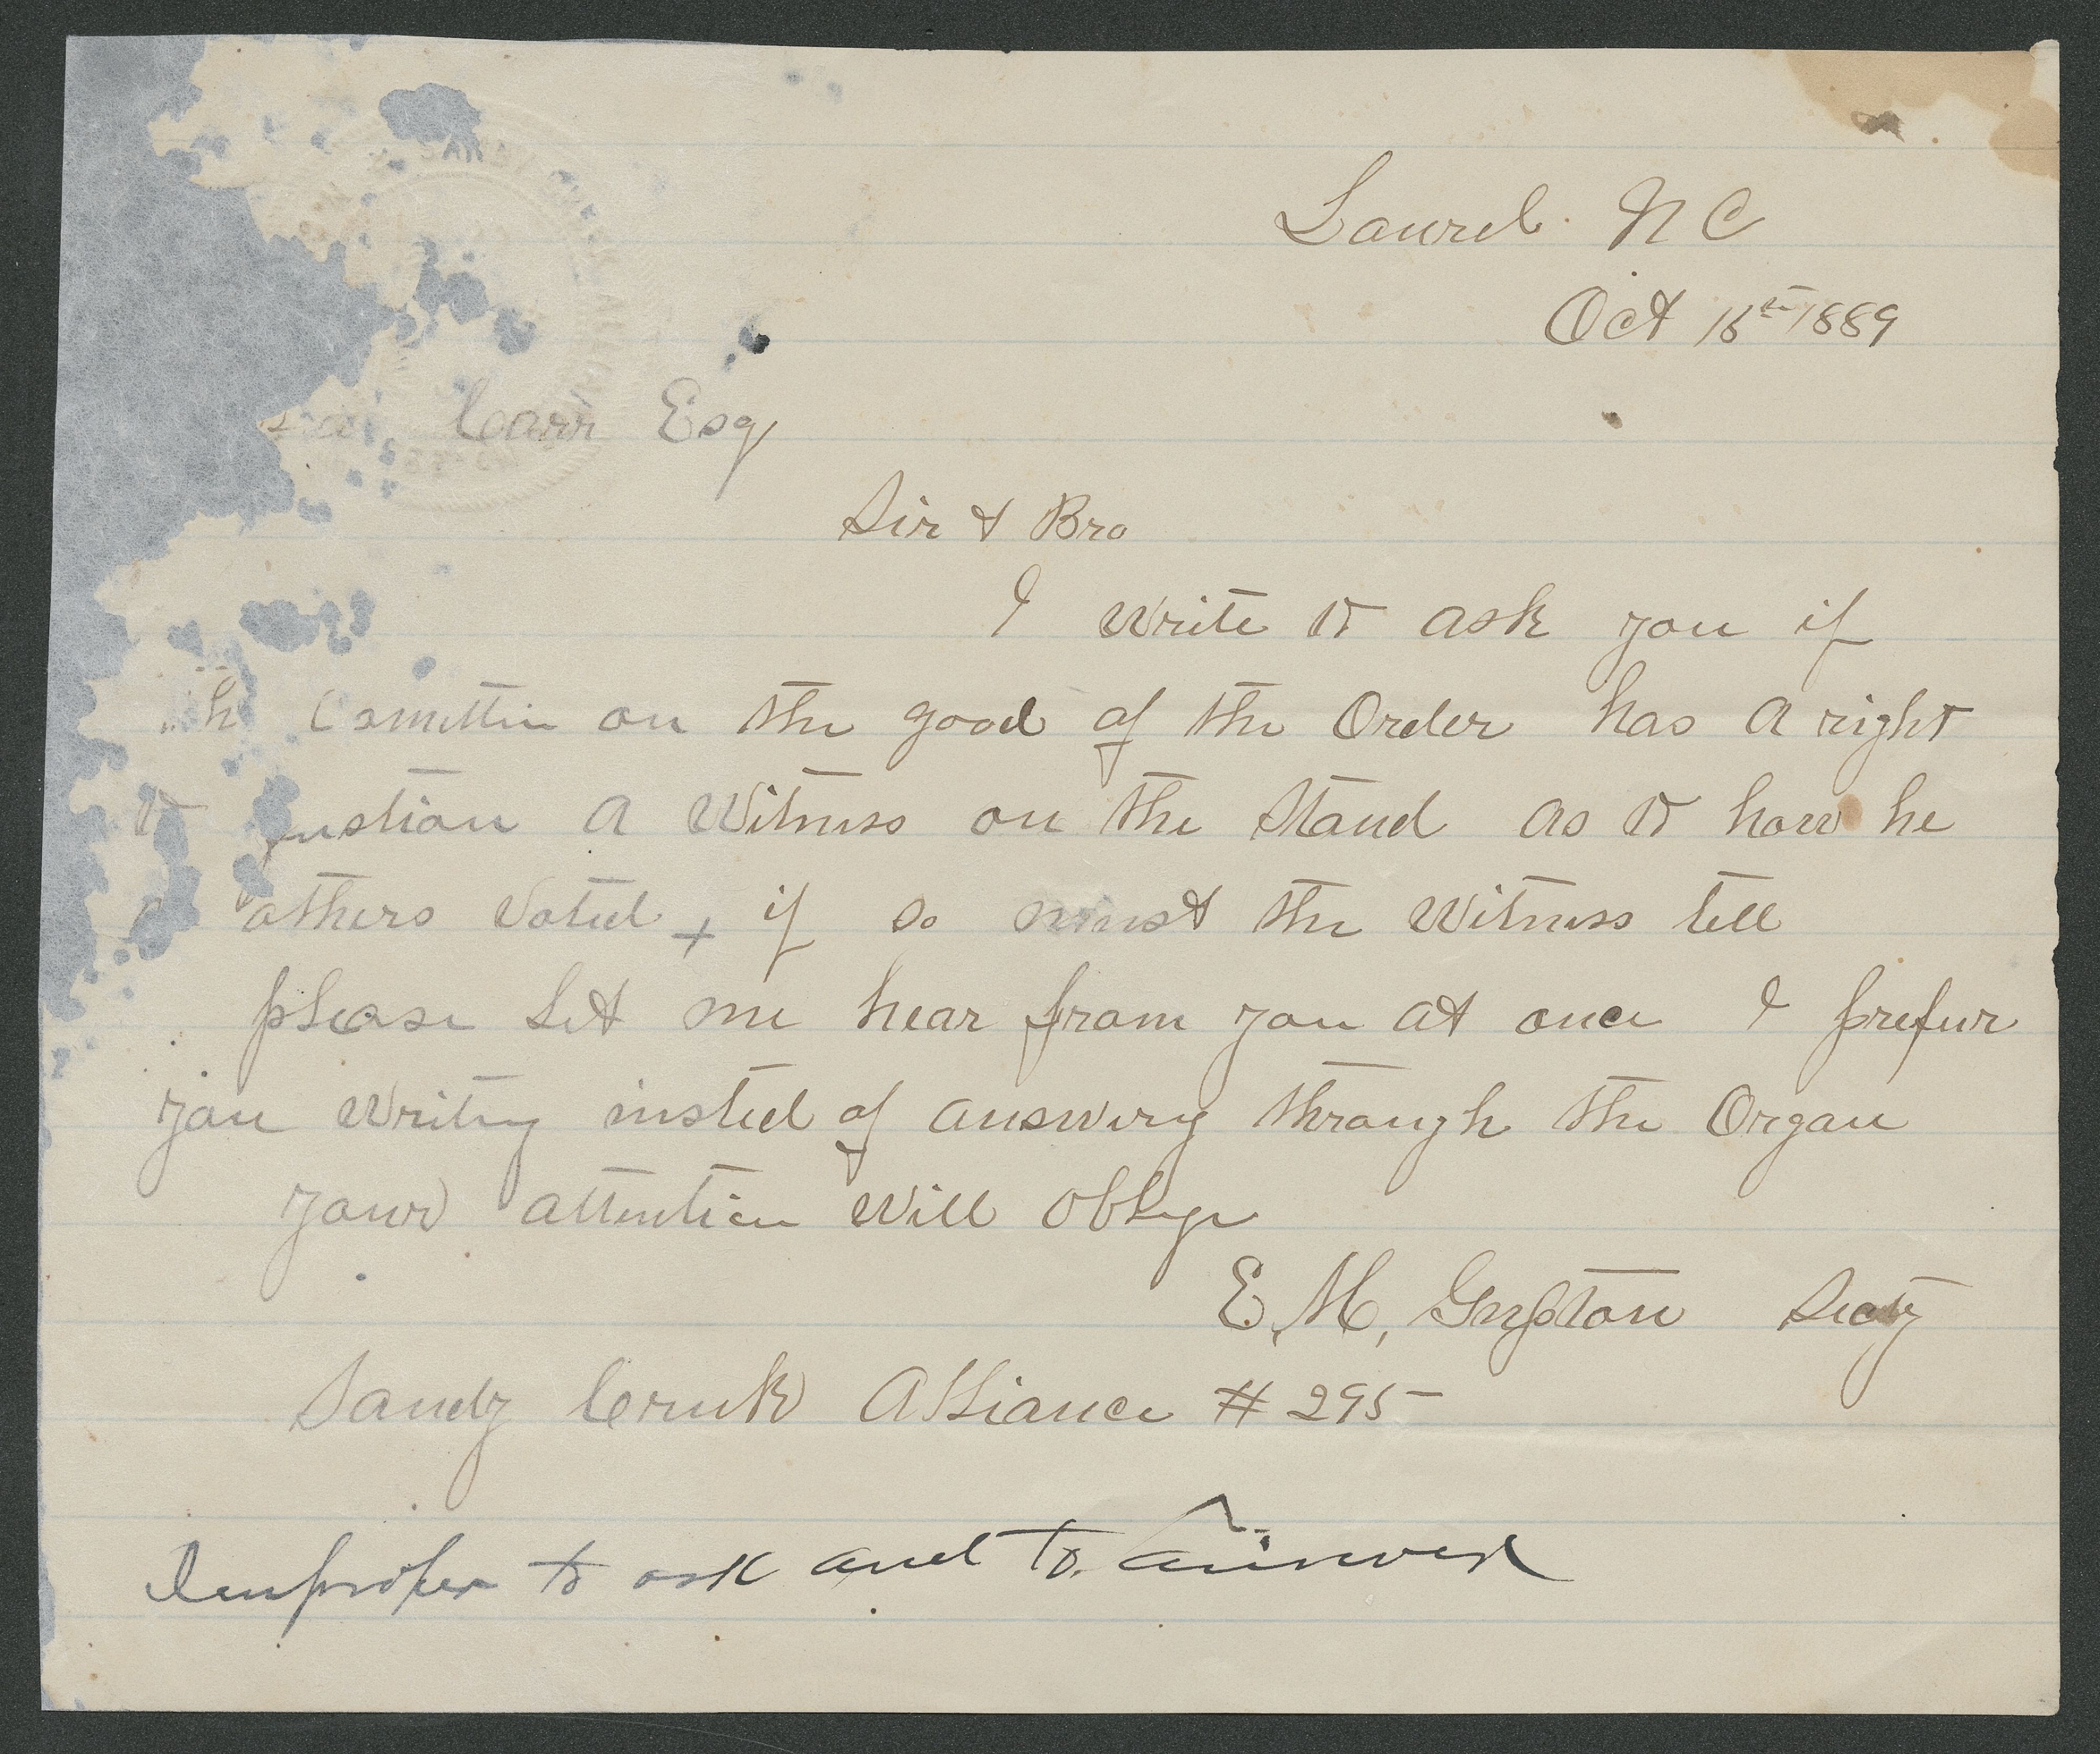 Laurel NC
Oct 16th 1889
Carr Esq
Sir & Bro
I write to ask you if
Comittie on the good of the Order has a right
to question a Witness on the Stand as to how he
others Voted + if so must the Witness tell
please Let me hear from you at once I prefur
you writing insted of answering through the Organ
your attention will oblige
E. M, Gupton Secty
Sandy Creek Alliance # 295
Improper to ask and to answer